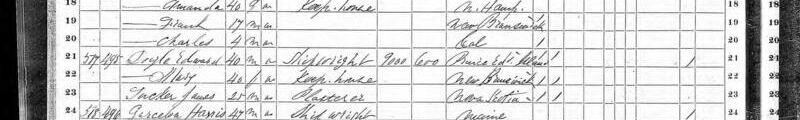 18 — Amanda 40 f w Keep. house N. Hamp. 18
19 — Frank 17 m w New Brunswick 19
20 — Charles 4 m w Cal 1 20
21 Doyle Edward 40 m w Shipwright 9000 600 Prince Edw. Island 1 1 21
22 — Mary 40 f w Keep. house New Brunswick 1 1 22
23 Tucker James 25 m w Plasterer Nova Scotia 1 1 23
24 Harris 47 m w Ship wright Maine 1 24